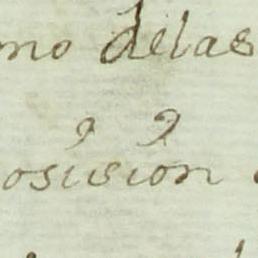 mo delas
osision